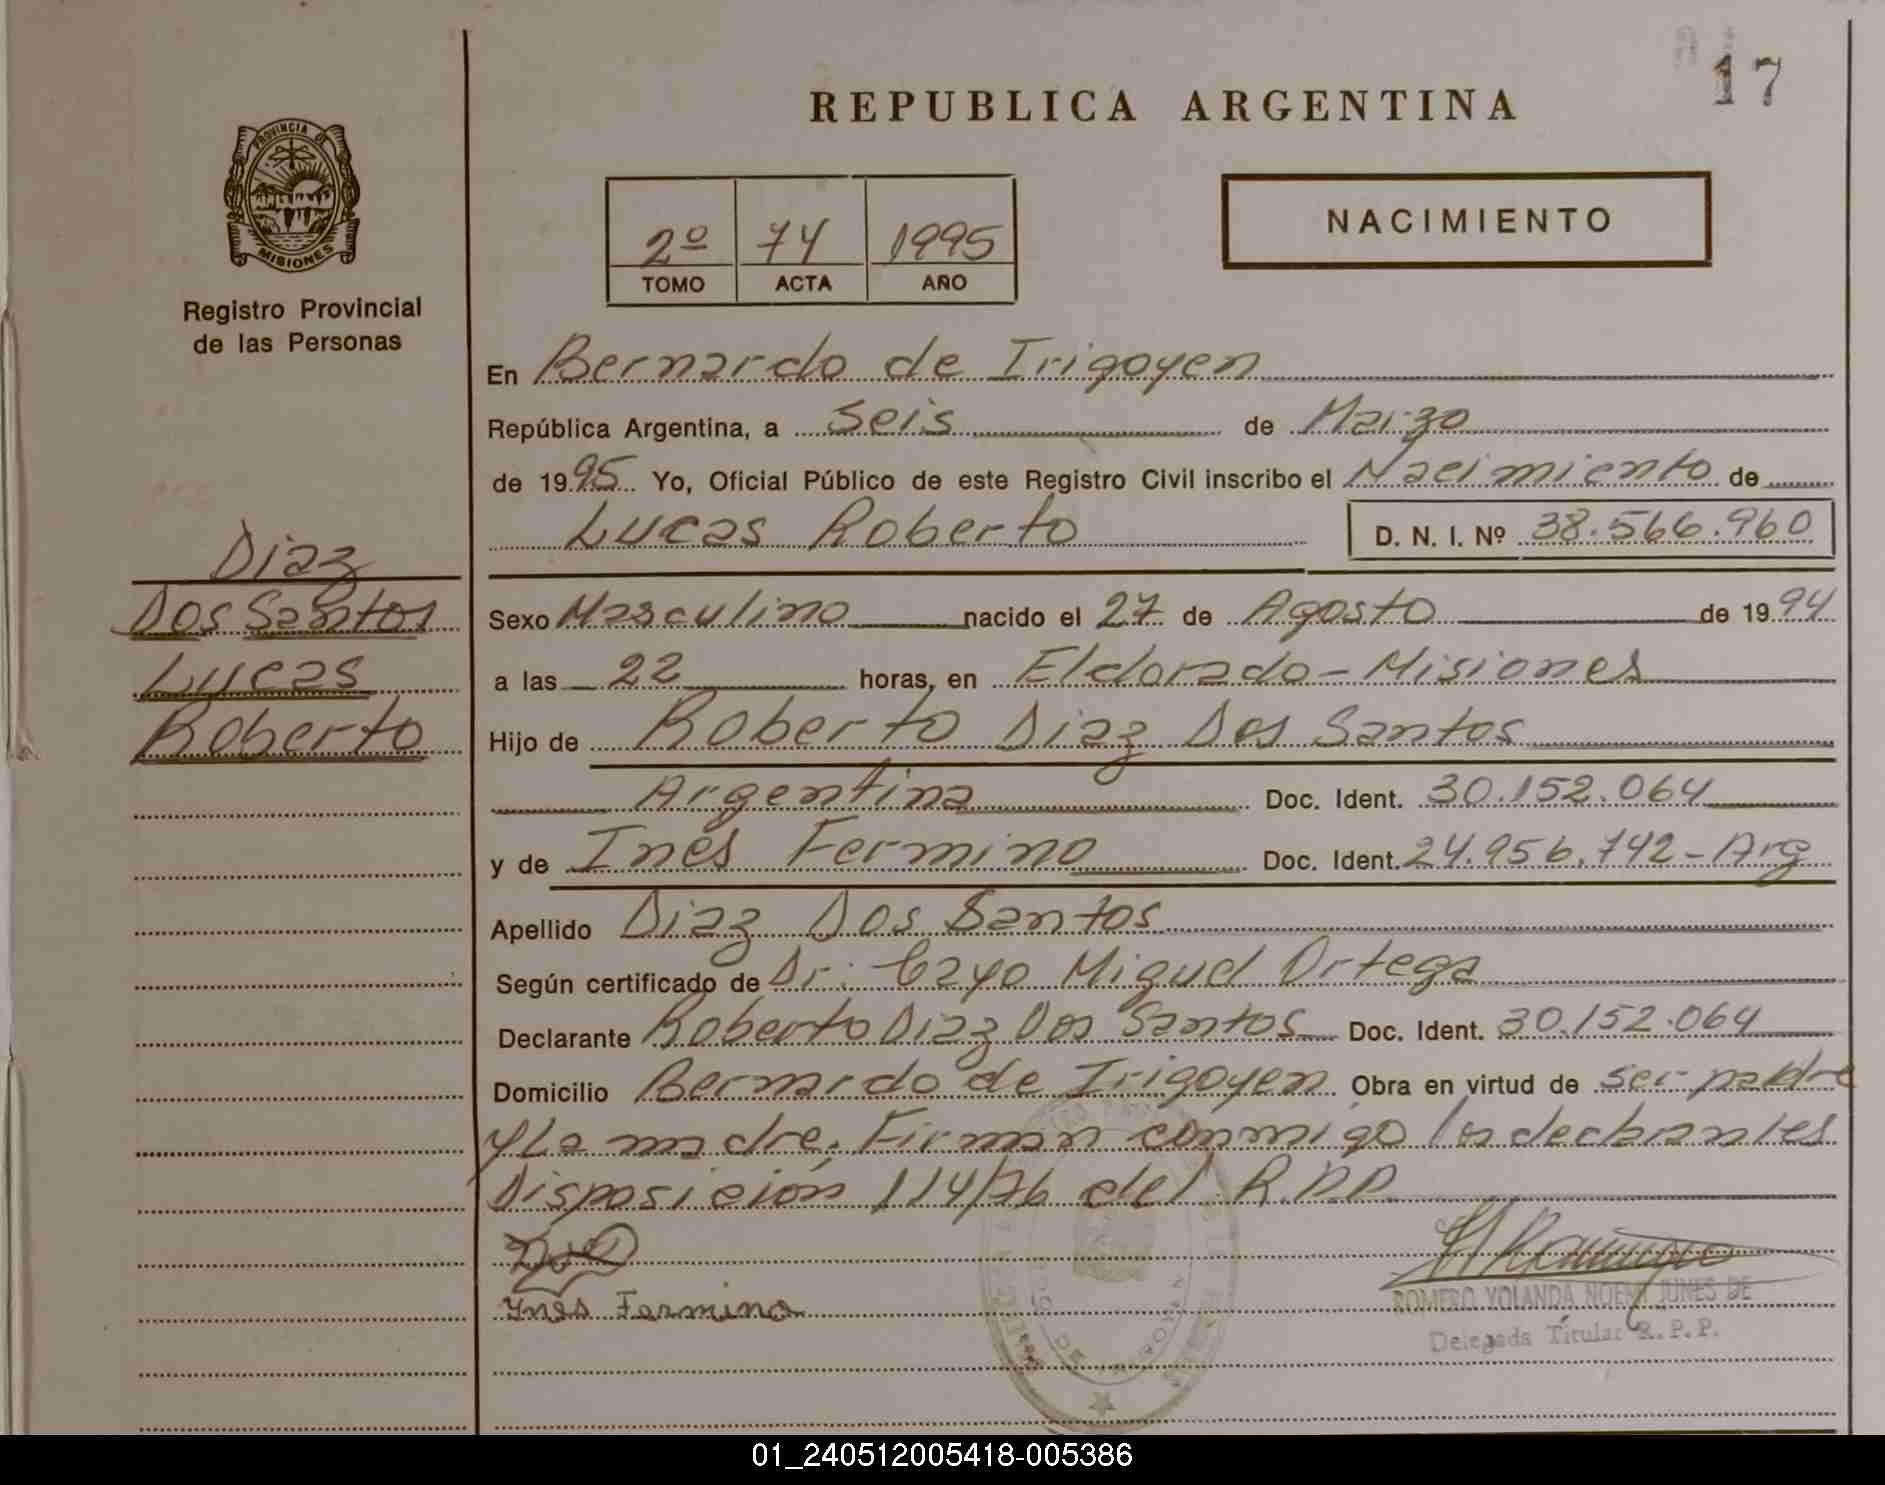 17
REPUBLICA ARGENTINA
PROVINCIA DE
MISIONES
Registro Provincial
de las Personas
2º 74 1995
TOMO ACTA AÑO
NACIMIENTO
En Bernardo de Irigoyen
República Argentina, a Seis de Marzo
de 1995 Yo, Oficial Público de este Registro Civil inscribo el Nacimiento de
Lucas Roberto D. N. I. Nº 38.566.960
Diaz
Dos Santos
Lucas
Roberto
Sexo Masculino nacido el 27 de Agosto de 1994
a las 22 horas, en Eldorado - Misiones
Hijo de Roberto Diaz Dos Santos
Argentina Doc. Ident. 30.152.064
y de Inés Fermino Doc. Ident. 24.956.742 - Arg
Apellido Diaz Dos Santos
Según certificado de Dr: Cayo Miguel Ortega
Declarante Roberto Diaz Dos Santos Doc. Ident. 30.152.064
Domicilio Bernardo de Irigoyen Obra en virtud de ser padre
y La madre. Firman conmigo los declarantes
Disposición 114/76 del R.P.P.
Ynes Fermino
ROMERO YOLANDA NOEMI JUNES DE
Delegada Titular R. P. P.
01_240512005418-005386